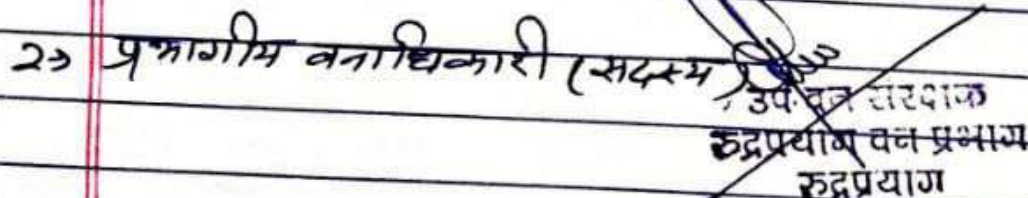 2→ प्रभागीय वनाधिकारी (सदस्य)
उप वन संरक्षक
रुद्रप्रयाग वन प्रभाग
रुद्रप्रयाग